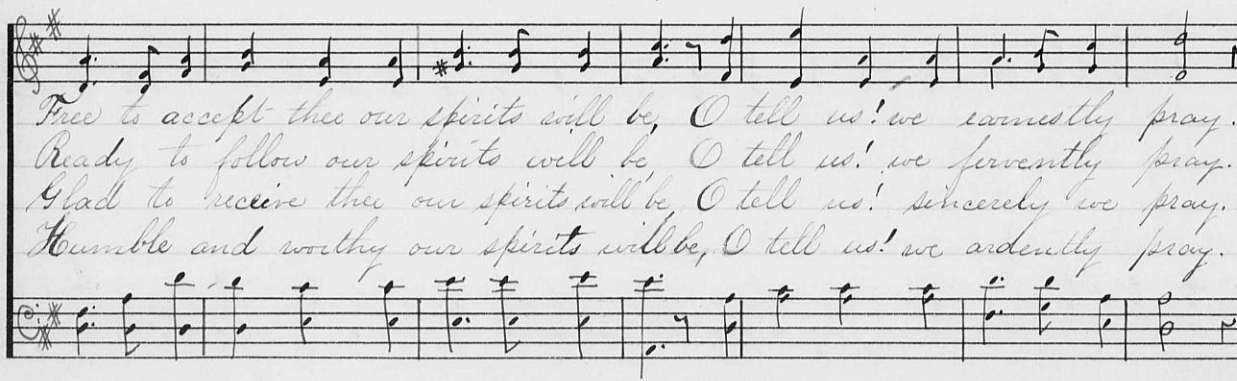 Free to accept thee our spirits will be, O tell us! we earnestly pray.
Ready to follow our spirits will be, O tell us! we fervently pray.
Glad to receive thee our spirits will be, O tell us! sincerely we pray.
Humble and worthy our spirits will be, O tell us! we ardently pray.